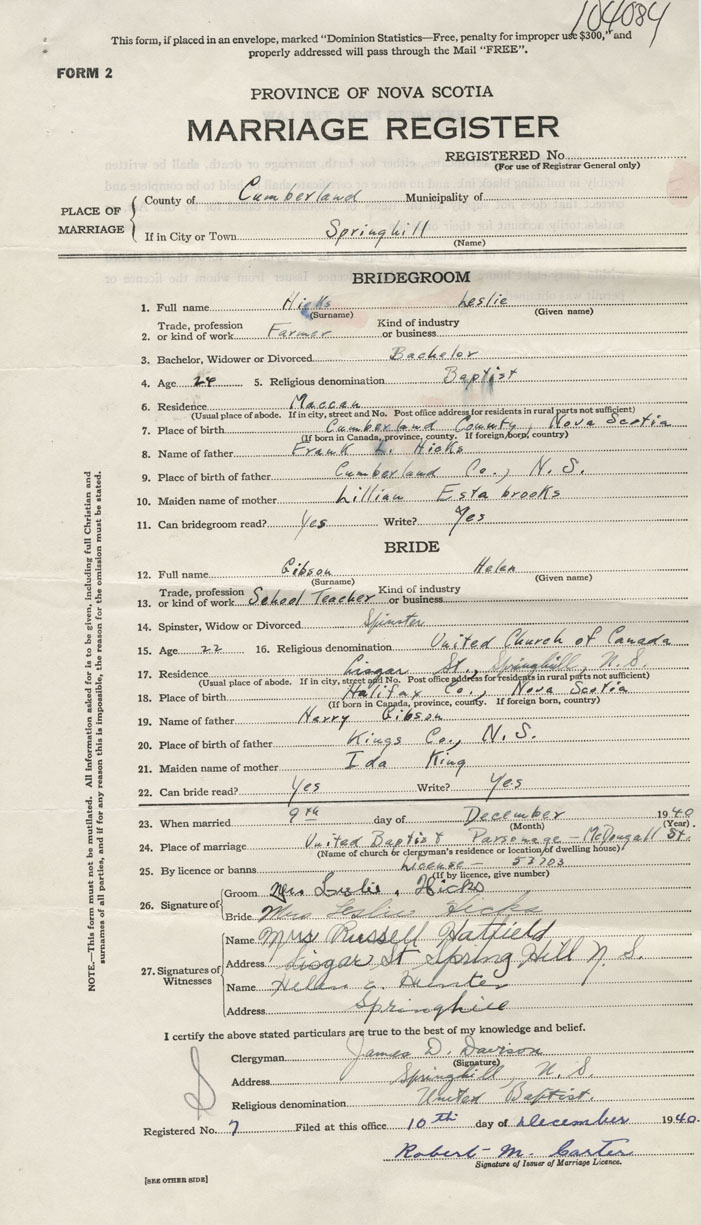 104084
This form, if placed in an envelope, marked "Dominion Statistics—Free, penalty for improper use $300," and
properly addressed will pass through the Mail "FREE".
FORM 2
PROVINCE OF NOVA SCOTIA
MARRIAGE REGISTER
REGISTERED No.
(For use of Registrar General only)
PLACE OF MARRIAGE
County of Cumberland Municipality of
If in City or Town Springhill
(Name)
BRIDEGROOM
1. Full name Hicks Leslie
(Surname) (Given name)
2. Trade, profession or kind of work Farmer Kind of industry or business
3. Bachelor, Widower or Divorced Bachelor
4. Age 24 5. Religious denomination Baptist
6. Residence Maccan
(Usual place of abode. If in city, street and No. Post office address for residents in rural parts not sufficient)
7. Place of birth Cumberland County, Nova Scotia
(If born in Canada, province, county. If foreign born, country)
8. Name of father Frank L. Hicks
9. Place of birth of father Cumberland Co., N. S.
10. Maiden name of mother Lillian Estabrooks
11. Can bridegroom read? Yes Write? Yes
BRIDE
12. Full name Gibson Helen
(Surname) (Given name)
13. Trade, profession or kind of work School Teacher Kind of industry or business
14. Spinster, Widow or Divorced Spinster
15. Age 22 16. Religious denomination United Church of Canada
17. Residence Lisgar St., Springhill, N. S.
(Usual place of abode. If in city, street and No. Post office address for residents in rural parts not sufficient)
18. Place of birth Halifax Co., Nova Scotia
(If born in Canada, province, county. If foreign born, country)
19. Name of father Harry Gibson
20. Place of birth of father Kings Co., N. S.
21. Maiden name of mother Ida King
22. Can bride read? Yes Write? Yes
23. When married 9th day of December 1940
(Month) (Year)
24. Place of marriage United Baptist Parsonage – McDougall St.
(Name of church or clergyman's residence or location of dwelling house)
25. By licence or banns License – 53703
(If by licence, give number)
26. Signature of
Groom Leslie Hicks
Bride Mrs Leslie Hicks
27. Signatures of Witnesses
Name Mrs Russell Hatfield
Address Lisgar St Spring Hill N. S.
Name Helen Hunter
Address Springhill
I certify the above stated particulars are true to the best of my knowledge and belief.
Clergyman James D. Davison
(Signature)
Address Springhill, N. S.
Religious denomination United Baptist.
Registered No. 7 Filed at this office 10th day of December 1940.
Robert M. Carter
Signature of Issuer of Marriage Licence.
[SEE OTHER SIDE]
NOTE.—This form must not be mutilated. All information asked for is to be given, including full Christian and
surnames of all parties, and if for any reason this is impossible, the reason for the omission must be stated.